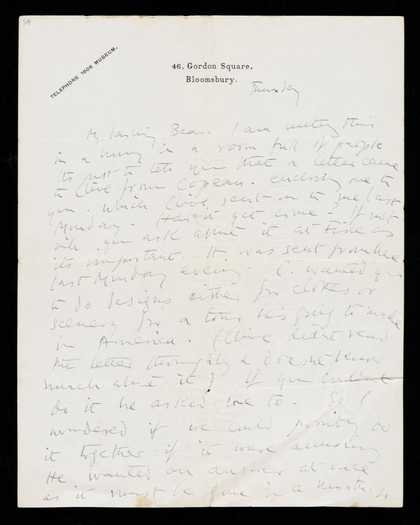 46, Gordon Square,
Bloomsbury.
TELEPHONE 1608 MUSEUM.
Thursday
My darling Bear. I am writing this
in a hurry in a room full of people
its just to tell you that a letter came
to Clive from Copeau. enclosing one to
you. which Clive sent on to you last
Monday. Hasnt yet come. If not
will you ask about it at as
its important. It was sent from here
last Monday evening. C. wanted you
to do designs either for clothes or
scenery for a tour he is going to make
in America. (Clive didnt read
the letter thoroughly & doesnt know
much about it) If you
do it he asked me to. So I
wondered if we could possibly do
it together if it were amusing
He wanted an answer at once
as it must be done in a month, &